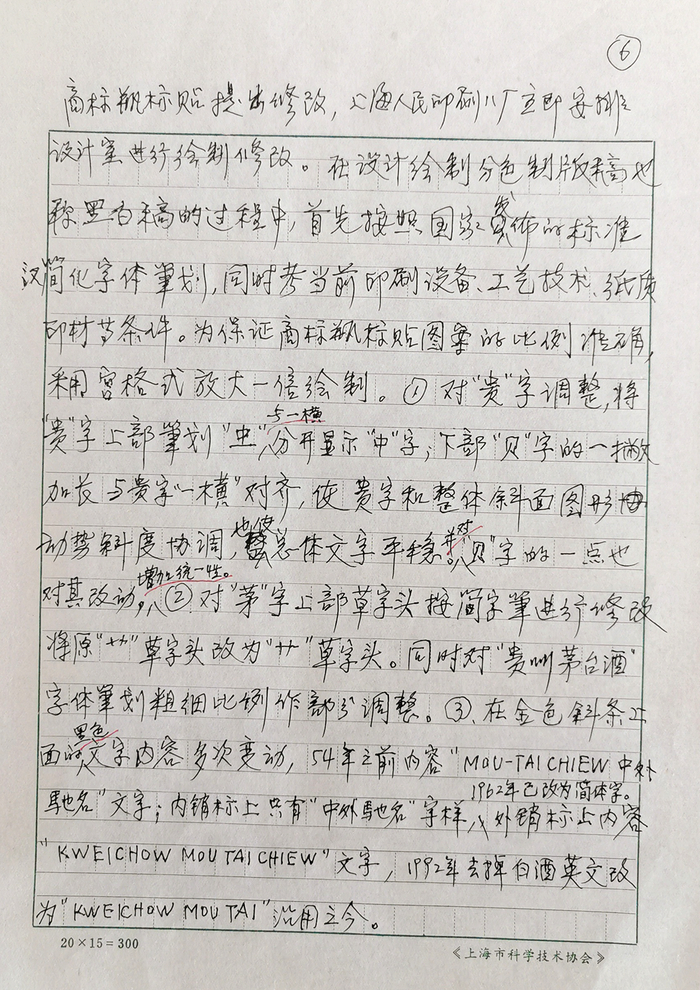 ⑥
商标瓶标贴提出修改,上海人民印刷八厂立即安排
设计室进行绘制修改。在设计绘制分色制版稿也
称黑白稿的过程中,首先按照国家发佈的标准
汉简化字体筆划,同时考当前印刷设备、工艺技术、纸质
印材等条件。为保证商标瓶标贴图案的比例准确,
采用宫格式放大一倍绘制。①对"贵"字调整,将
与一横
"贵"字上部筆划"虫"分开显示"中"字;下部"贝"字的一撇
加长与贵字"一横"对齐,使贵字和整体斜面图形
动势斜度协调,也使总体文字平稳。并对"贝"字的一点也
增加统一性。
对其改动,②对"茅"字上部草字头按简字筆进行修改
将原"艹"草字头改为"艹"草字头。同时对"贵州茅台酒"
字体筆划粗细比例作部分调整。③在金色斜条上
黑色
面的文字内容多次变动,54年之前内容"MOU-TAI CHIEW 中外
1962年已改为简体字。
馳名"文字;内销标上只有"中外馳名"字样,外销标上内容
"KWEICHOW MOU TAI CHIEW"文字,1992年去掉白酒英文改
为"KWEICHOW MOU TAI"沿用之今。
20×15=300
《上海市科学技术协会》